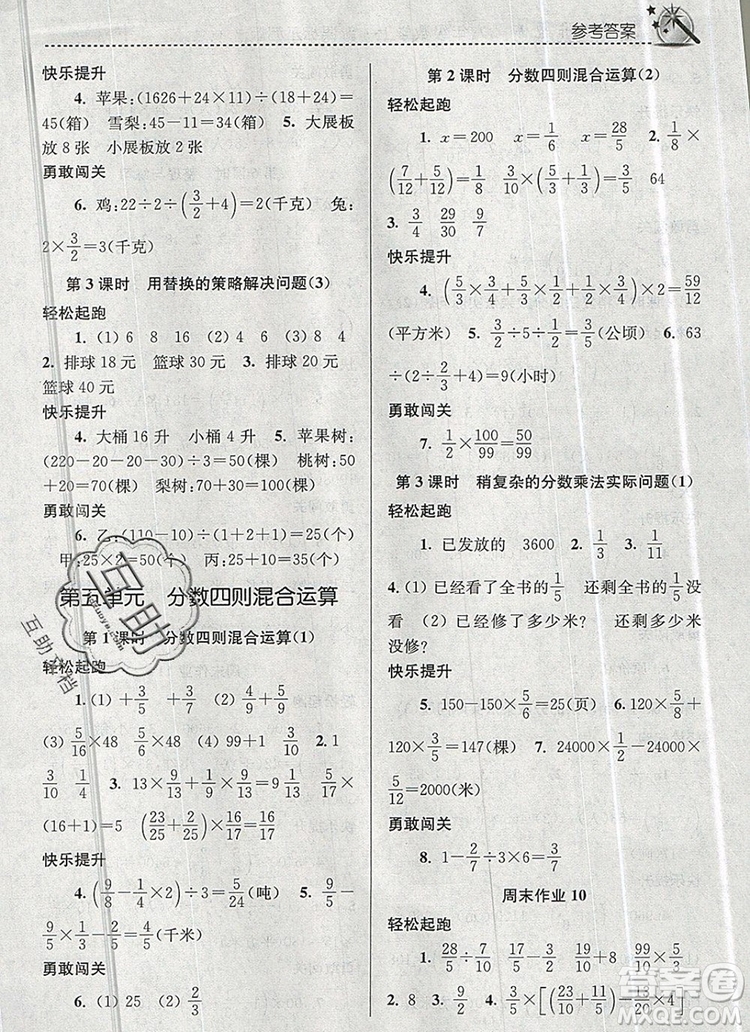 参考答案
快乐提升
4. 苹果:(1626+24×11)÷(24+18)=
45(箱) 雪梨:45-11=34(箱) 5. 大展板
放 8 张 小展板放 2 张
勇敢闯关
6. 鸡:22÷2÷(3/2+4)=2(千克) 兔:
2×3/2=3(千克)
第 3 课时 用替换的策略解决问题(3)
轻松起跑
1. (1) 6 8 16 (2) 4 (3) 8 4
2. 排球 18 元 篮球 30 元 3. 排球 20 元
篮球 40 元
快乐提升
4. 大桶 16 升 小桶 4 升 5. 苹果树:
(220-20-20-30)÷3=50(棵) 桃树:50+
20=70(棵) 梨树:70+30=100(棵)
勇敢闯关
6. 乙:(110-10)÷(1+2+1)=25(个)
甲:25×2=50(个) 丙:25+10=35(个)
第五单元 分数四则混合运算
第 1 课时 分数四则混合运算(1)
轻松起跑
1. (1) + 3/5 + 3/7 (2) 4/9 + 5/9
(3) 5/16 ×48 5/6 ×48 (4) 99+1 2. 1
3/10 1/4 3. 13×9/13+1/9×9/13= 9/13×
(16+1)=5 (23/25+2/25)×16/17=16/17
快乐提升
4. (9/8-1/4×2)÷3=5/24(吨) 5. 9/5-
9/5×(1/3+2/9)=4/5(千米)
勇敢闯关
6. (1) 25 (2) 2/5
第 2 课时 分数四则混合运算(2)
轻松起跑
1. x=200 x=1/6 x=28/5 2. 1/8×
(7/12+5/12) 3/10×(1/5+3/5) 64
3. 3/4 29/30 9/7
快乐提升
4. (5/3×3/2+5/3×1/2+1/2×3/2)×2=59/12
(平方米) 5. 3/2÷5÷1/2=3/5(公顷) 6. 63
÷(2÷2/3+4)=9(小时)
勇敢闯关
7. 1/2×100/99=50/99
第 3 课时 稍复杂的分数乘法实际问题(1)
轻松起跑
1. 已发放的 3600 2. 1/3 3. 1/11
4. (1) 已经看了全书的几分之几? 还剩全书的几分之几没
看? (2) 已经修了多少米? 还剩多少米
没修?
快乐提升
5. 150-150×5/6=25(页) 6. 120×5/8+
120×3/4=165(棵) 7. 24000×1/2-24000×
5/12=2000(米)
勇敢闯关
8. 1-2/7÷3×6=3/7
周末作业 10
轻松起跑
1. 28/5 7/10 27/10 15 3/8 19/4 34/7
2. 8 3. 9/2 4. 4/5×[(7/10+5/8)-1/5]
互助
互助文档
答案圈